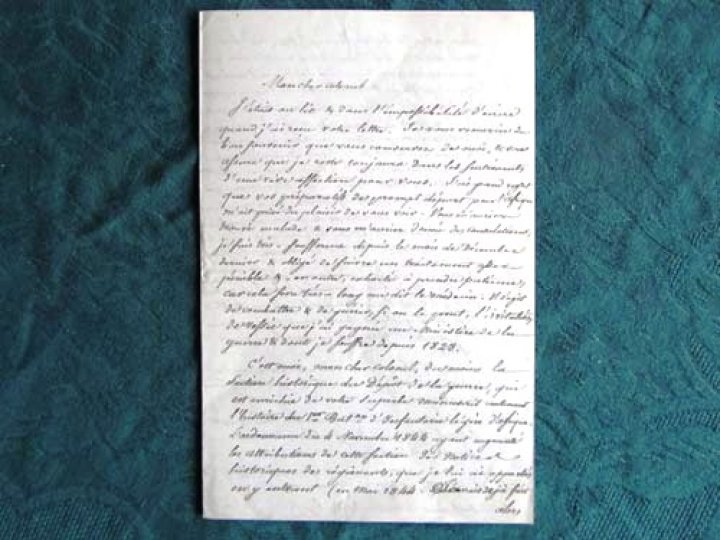 Mon cher colonel
J'étais au lit & dans l'impossibilité d'écrire
quand j'ai reçu votre lettre. Je vous remercie du
bon souvenir que vous conservez de moi, & vous
que je reste toujours dans les sentiments
d'une vive affection pour vous. J'ai grand regret
que vos préparatifs de prompt départ pour l'
m'ait privé du plaisir de vous voir. Vous m'auriez
trouvé malade & vous m'auriez donné des consolations,
je suis très souffrant depuis le mois de Décembre
dernier & obligé de suivre un traitement
pénible & en outre, exhorté à prendre patience,
car cela sera très long me dit le médecin. Il s'agit
de combattre & de guérir, si on le peut, l'
de vessie que j'ai gagnée au Ministère de la
guerre & dont je souffre depuis 1828.
C'est moi, mon cher colonel, du moins la
Section historique du Dépôt de la guerre, qui
est enrichie de votre superbe manuscrit contenant
l'histoire du 1er Bat.on d'Infanterie légère d'Afrique.
L'ordonnance du 4 Novembre 1844 ayant augmenté
les attributions de cette section des notices
historiques des régiments, que je lui ai
en y entrant (en Mai 1844. déjà fait
alors